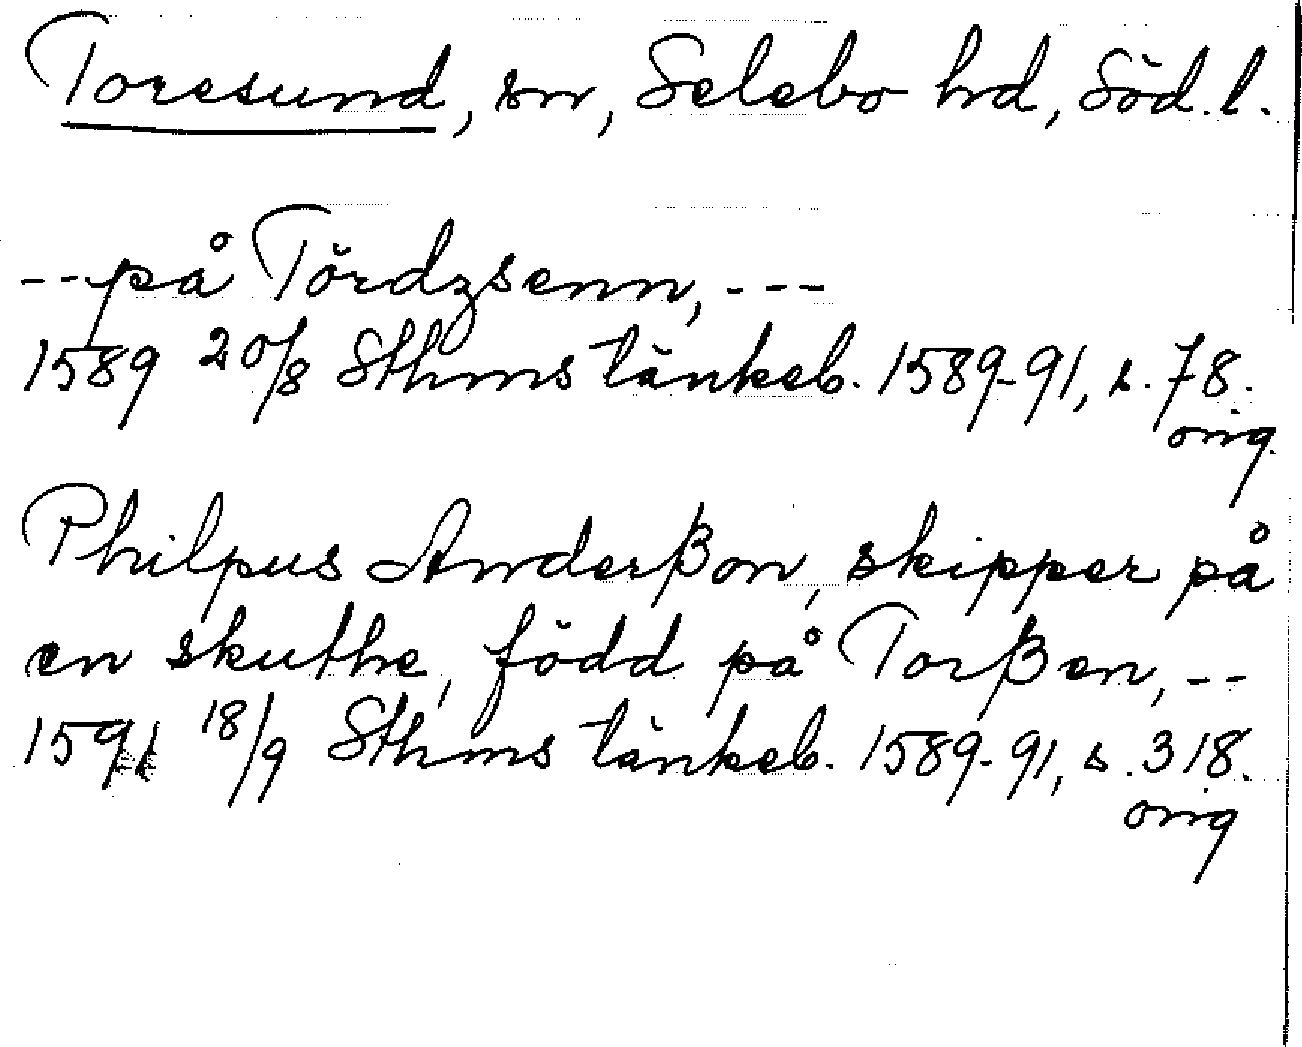 Toresund, sn, Selebo hd, Söd.l.
--på Tördzsenn, ---
1589 20/8 Sthms tänkeb. 1589-91, s. 78.
orig.
Philpus Anderßon, skipper på
en skuthe, född på Torßen, --
1591 18/9 Sthms tänkeb. 1589-91, s. 318.
orig